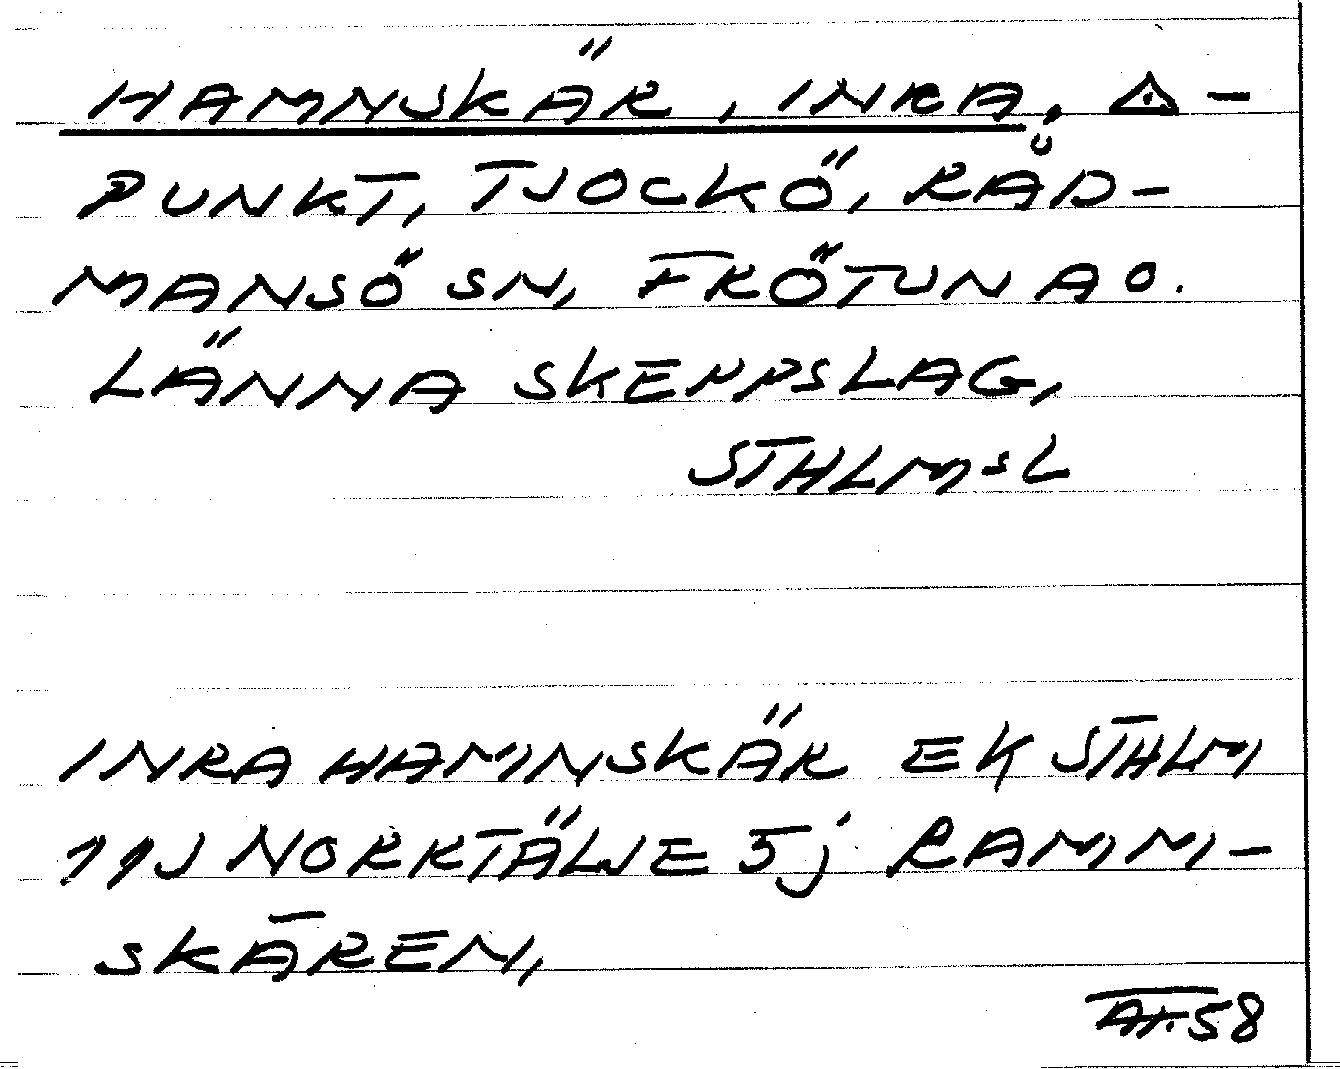 HAMNSKÄR, INRA, △-
PUNKT, TJOCKÖ, RÅD-
MANSÖ SN, FRÖTUNA O.
LÄNNA SKEPPSLAG,
STHLMSL
INRA HAMNSKÄR EK STHLM
11J NORRTÄLJE 5j RAMM-
SKÄREN,
58